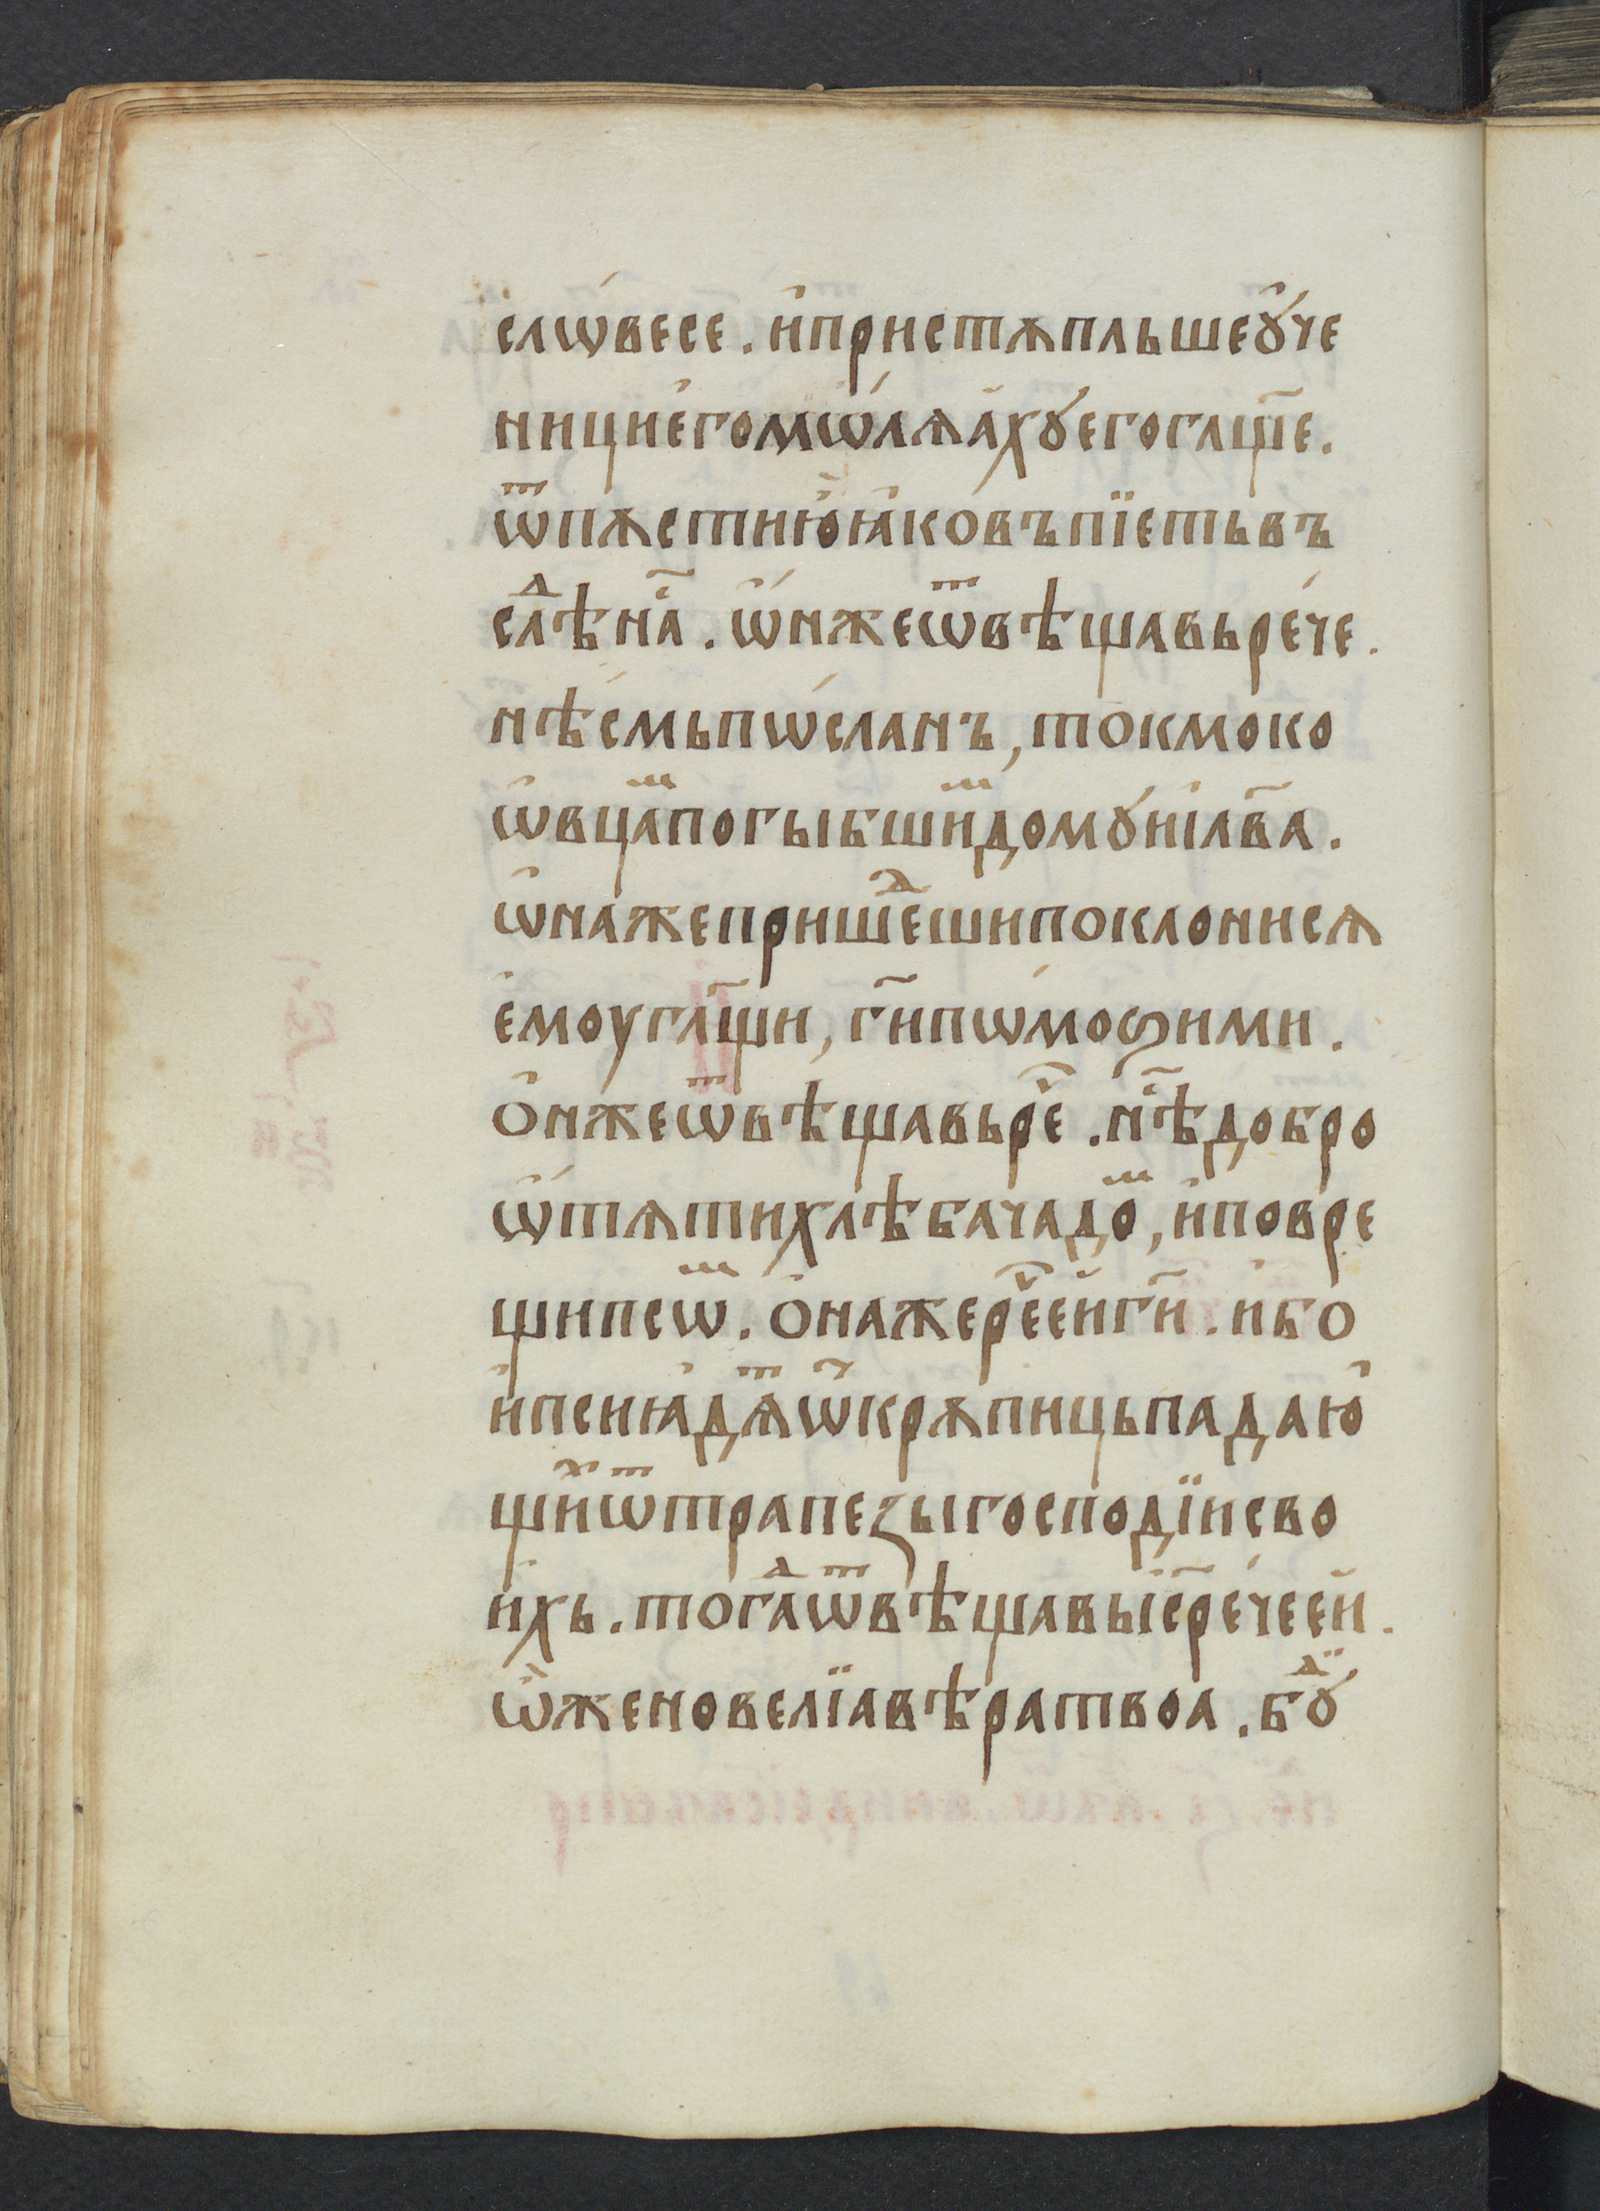 слѡ́весе . и҆пристѫпльшеꙋ҆́че
ници е҆гомѡ́лѧа҆хꙋегоглщ҃е .
ѿпѫстию҆ꙗ҆ковъпїетьвъ
слⷣѣна҃ . ѡ҆́нжеѿвѣщавьре́че .
нѣ́смьпѡ́сланъ , токмоко
ѡ҆вцаⷨпогыбшиⷨдомꙋ́и҆ілв҃а .
ѡ҆нажепришеⷣшипоклонисѧ
е҆моуглщ҃и , гн҃ипѡ́моѕими .
О҆нжеѿвѣщавьреⷱ҇ . нѣ҇добро
ѡ҆́тѧтихлѣбачадоⷨ , и҆поврe
щипсѡⷨ . О҆нажереⷱ҇ей гн҃и . и҆бо
и҆псиꙗ҆дѧⷮѿ҆крѫпицьпадаю҆
щиⷯѿтрапеꙁыгосподїисво
и҆хь . тогаⷣѿвѣщавыіс҃ре́чеей .
ѽженовелїавѣратвоа . бꙋⷣ